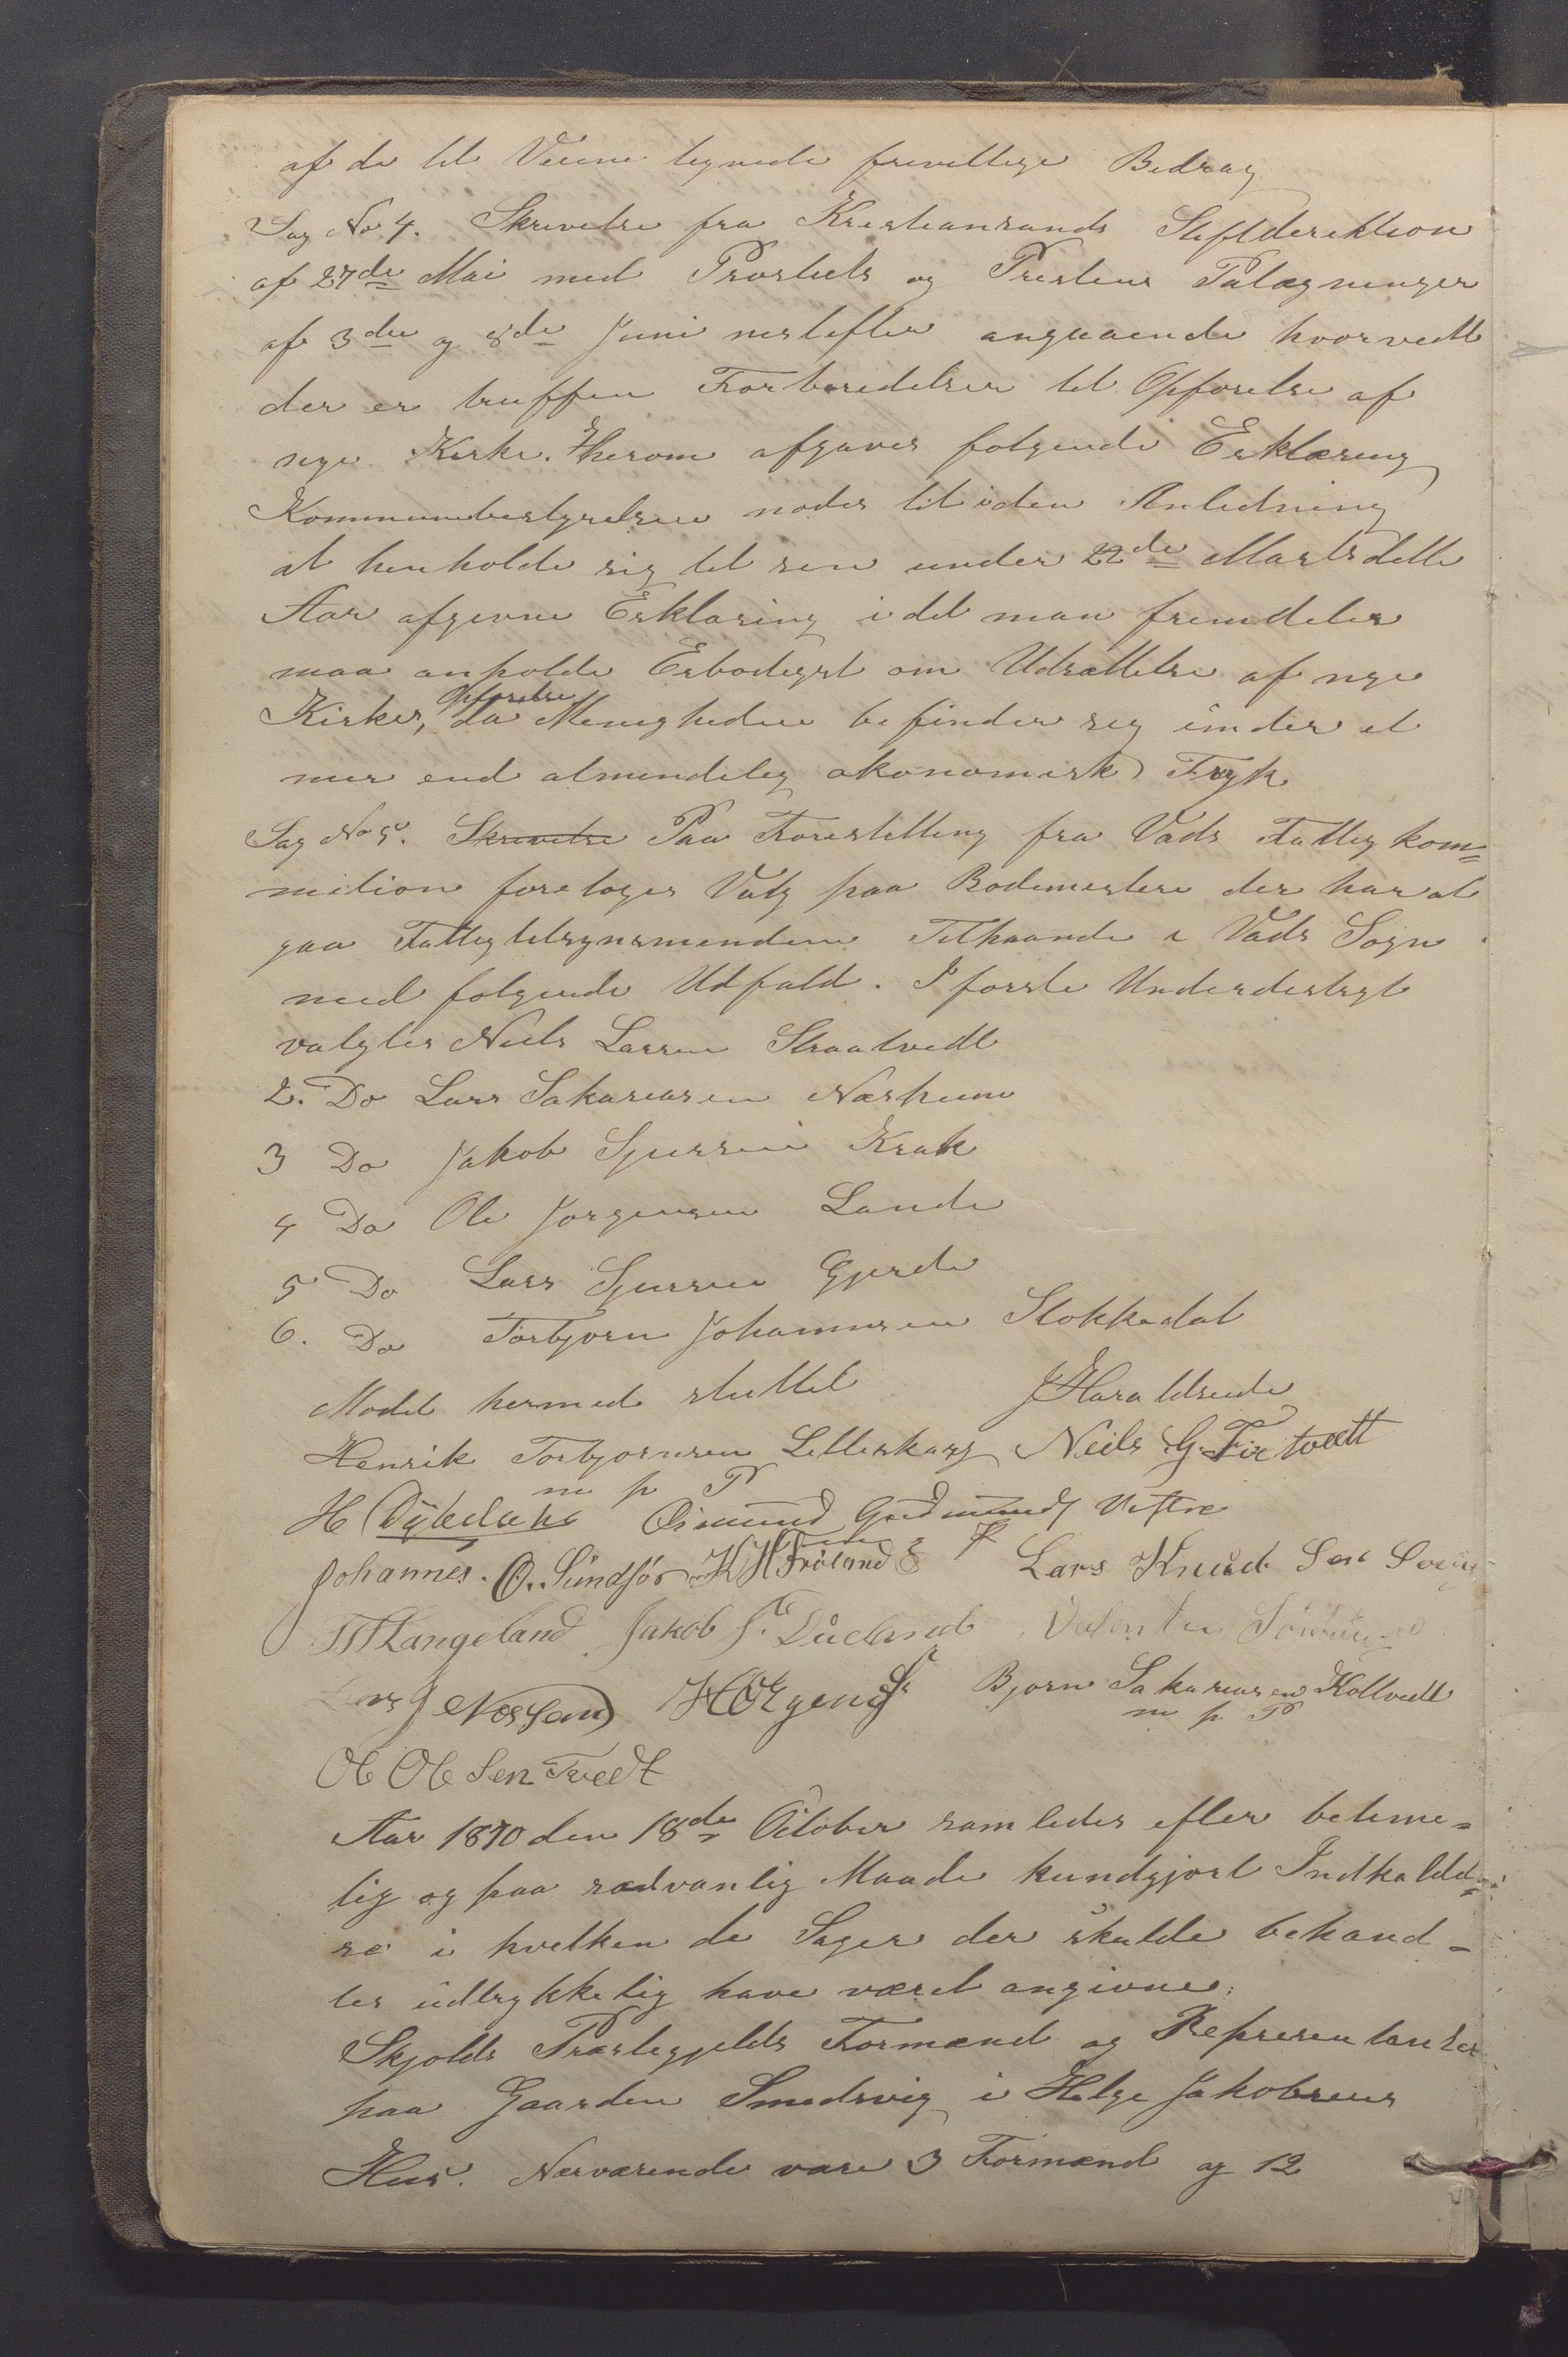 af de til Veiene tegnede frivillige Bedrag
Sag No 4. Skrivelse fra Kristiansands Stiftderektion
af 27de Mai med Prostiets og Prestens Paategninger
af 3die og 8de Juni nestefter angaaende hvorvidt
der er truffen Forberedelser til Opførelse af
nye Kirke. Herom afgaves følgende Erklæring
Kommunebestyrelsen nødes til i den Anledning
at henholde sig til sen under 22de Marts dette
Aar afgivne Erklæring i det man fremdeles
maa anholde Erbødigst om Udsættelse af nye
Kirkes, Opførelse da Menigheden befinder sig under et
mer end almindelig økonomisk Tryk
Sag No 5. Skrivelse Paa Forestilling fra Vads Fattigkom=
mition foretoges Valg paa Bodemestere der har at
gaa Fattigtilsynsmendene Tilhaande i Vads Sogn
med følgende Udfald. I første Underdestrgt
valgtes Niels Larsen Straatvedt
2. Do Lars Sakariasen Nærheim
3 Do Jakob Sjursen Krak
4 Do Ole Jørgensen Lande
5 Do Lars Sjursen Gjerde
6. Do Torbjørn Johannesen Stokkedal
Mødet hermed sluttet JHaraldseide
Henrik Torbjørnsen Lilleskarg Neils G. Fixtvedt
m p P
H Dybdahl Osmund Gudmunds Vestre
Johannes. O. Sundfør KHFrøland Lars Knud Sen
TTLangeland Jakob Dueland Valentin
J Nessand Bjørn Sakariasen Kollvedt
m p P
Ol Ol Sen Tvedt
Aar 1870 den 18de October samledes efter betime=
lig og paa sædvanlig Maade kundgjort Indkaldel=
se i hvilken de Sager der skulde behand=
les udtrykkelig have været angivne,
Skjolds Præstegjelds Formænd og Representanter
paa Gaarden Smedsvig i Helge Jakobsens
Hus. Nærværende vare 3 Formænd og 12